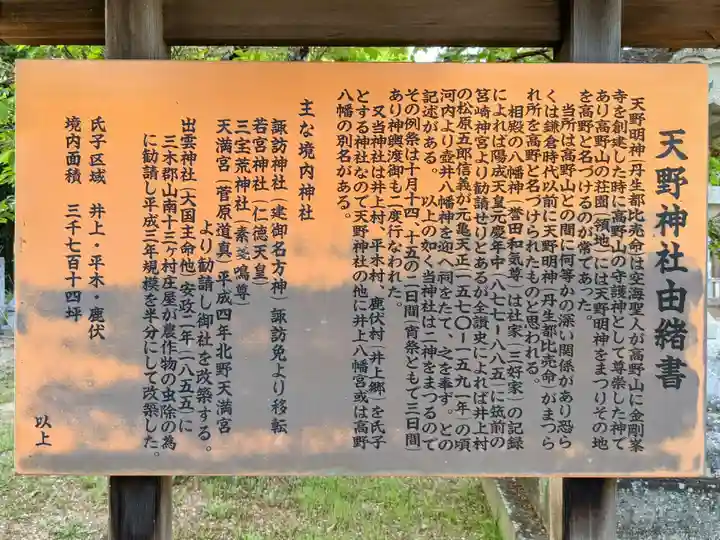 天野神社由緒書
天野明神(丹生都比売命)は空海聖人が高野山に金剛峯
寺を創建した時に高野山の守護神として尊崇した神で
あり高野山の荘園(領地)には天野明神をまつりその地
を高野と名づけるのが常であった。
当所は高野山との間に何等かの深い関係があり恐ら
くは鎌倉時代以前に天野明神(丹生都比売命)がまつら
れ所を高野と名づけられたものと思われる。
相殿の八幡神(誉田和気尊)は社家(三好家)の記録
によれば陽成天皇元慶年中(八七七-八八五)に筑前の
筥崎神宮より勧請せりとあるが全讃史によれば井上村
の松原五郎信義が元亀天正(一五七〇-一五九一年)の頃
河内より壺井八幡神を迎へ祠をたて、之を奉す。との
記述がある。以上の如く当神社は二神をまつるので
その例祭は十月十四、十五の二日間(宵祭ともで三日間)
あり神輿渡御も二度行なわれた。
又当神社は井上村、平木村、鹿伏村(井上郷)を氏子
とする神社なので天野神社の他に井上八幡宮或は高野
八幡の別名がある。
主な境内神社
諏訪神社(建御名方神)諏訪免より移転
若宮神社(仁徳天皇)
三宝荒神社(素戔嗚尊)
天満宮(菅原道真)平成四年北野天満宮
より勧請し御社を改築する。
出雲神社(大国主命他)安政二年(一八五五)に
三木郡山南十三ヶ村庄屋が農作物の虫除の為
に勧請し平成三年規模を半分にして改築した。
氏子区域 井上・平木・鹿伏
境内面積 三千七百十四坪
以上